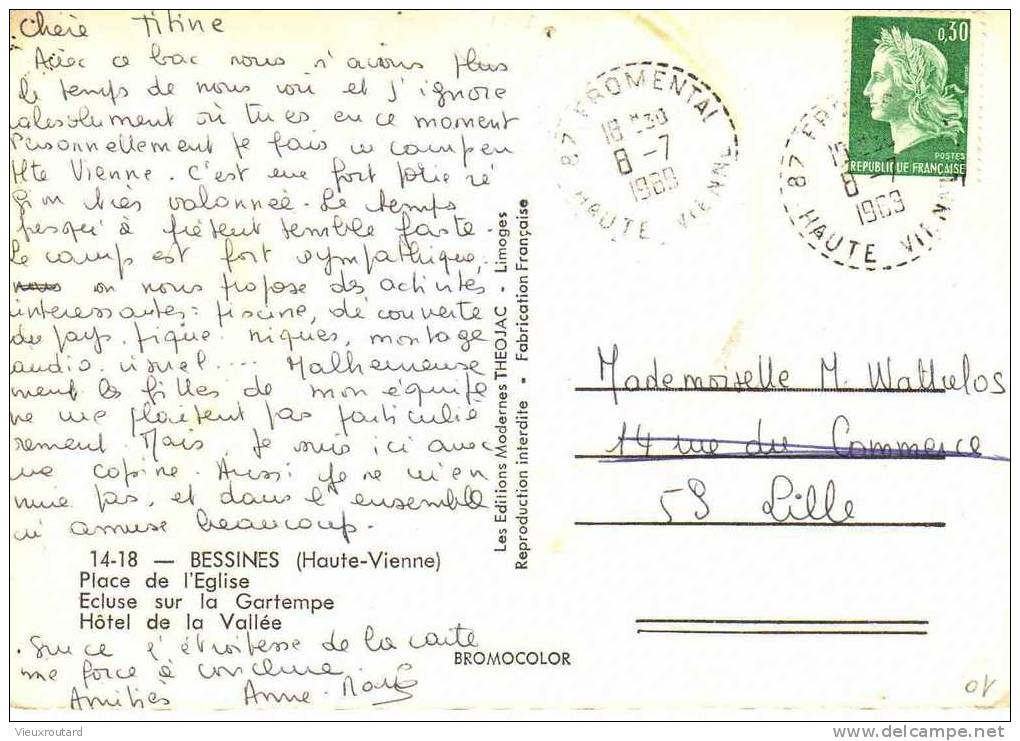 Chère Titine
Avec ce bac nous n'avons plus
le temps de nous voir et j'ignore
absolument où tu es en ce moment
Personnellement je fais un camp en
Hte Vienne. C'est une fort jolie ré
gion très valonnée. Le temps
jusqu'à présent semble faste.
Le camp est fort sympathique,
on nous propose des activités
interessantes: piscine, découverte
du pays, pique-niques, montage
audio-visuel.... Malheureuse
ment les filles de mon équipe
ne me plaisent pas particuliè
rement. Mais je suis ici avec
une copine. Aussi je ne m'en
nuie pas, et dans l'ensemble
m'amuse beaucoup.
14-18 — BESSINES (Haute-Vienne)
Place de l'Eglise
Ecluse sur la Gartempe
Hôtel de la Vallée
Sur ce l'étroitesse de la carte
me force à conclure.
Amitiés Anne-Marie
BROMOCOLOR
Les Editions Modernes THEOJAC - Limoges
Reproduction interdite - Fabrication Française
87 FROMENTAL
16 H30
8 -7
1969
HAUTE VIENNE
87 FR
8 -7
1969
HAUTE VIENNE
0,30
POSTES
REPUBLIQUE FRANÇAISE
Mademoiselle M. Wattrelos
14 rue du Commerce
59 Lille
Vieuxroutard
delcampe.net